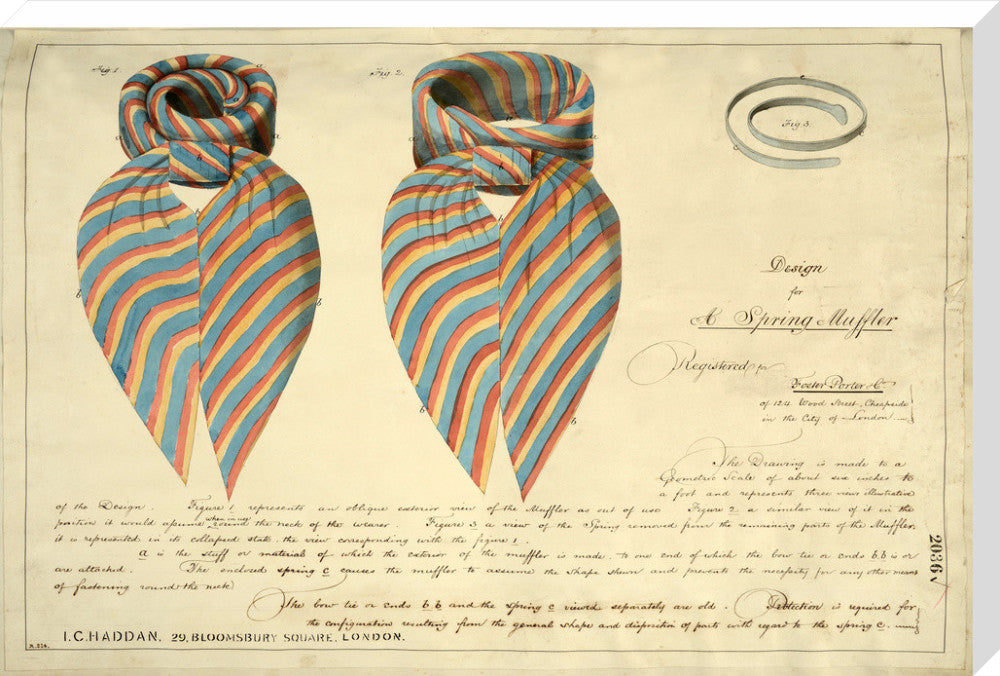 Fig. 1.
a
a
a
b
b
b
b
Fig. 2.
a
a
b
b
b
b
c
Fig. 3.
c
Design
for
A Spring Muffler
Registered for
Foster Porter & Co
of 124 Wood Street, Cheapside
in the City of London
The Drawing is made to a
Geometric Scale of about six inches to
a foot and represents three views illustrative
of the Design. Figure 1 represents an oblique exterior view of the Muffler as out of use. Figure 2 a similar view of it in the
when in use
position it would assume round the neck of the wearer. Figure 3 a view of the Spring removed from the remaining parts of the Muffler.
it is represented in its collapsed state, the view corresponding with the figure 1.
a is the stuff or material of which the exterior of the muffler is made, to one end of which the bow tie or ends b.b is or
are attached. The enclosed spring c causes the muffler to assume the shape shown and prevents the necessity for any other means
of fastening round the neck
The bow tie or ends b.b and the spring c viewed separately are old. Protection is required for
the configuration resulting from the general shape and disposition of parts with regard to the spring c.
I.C. HADDAN. 29, BLOOMSBURY SQUARE, LONDON.
20361